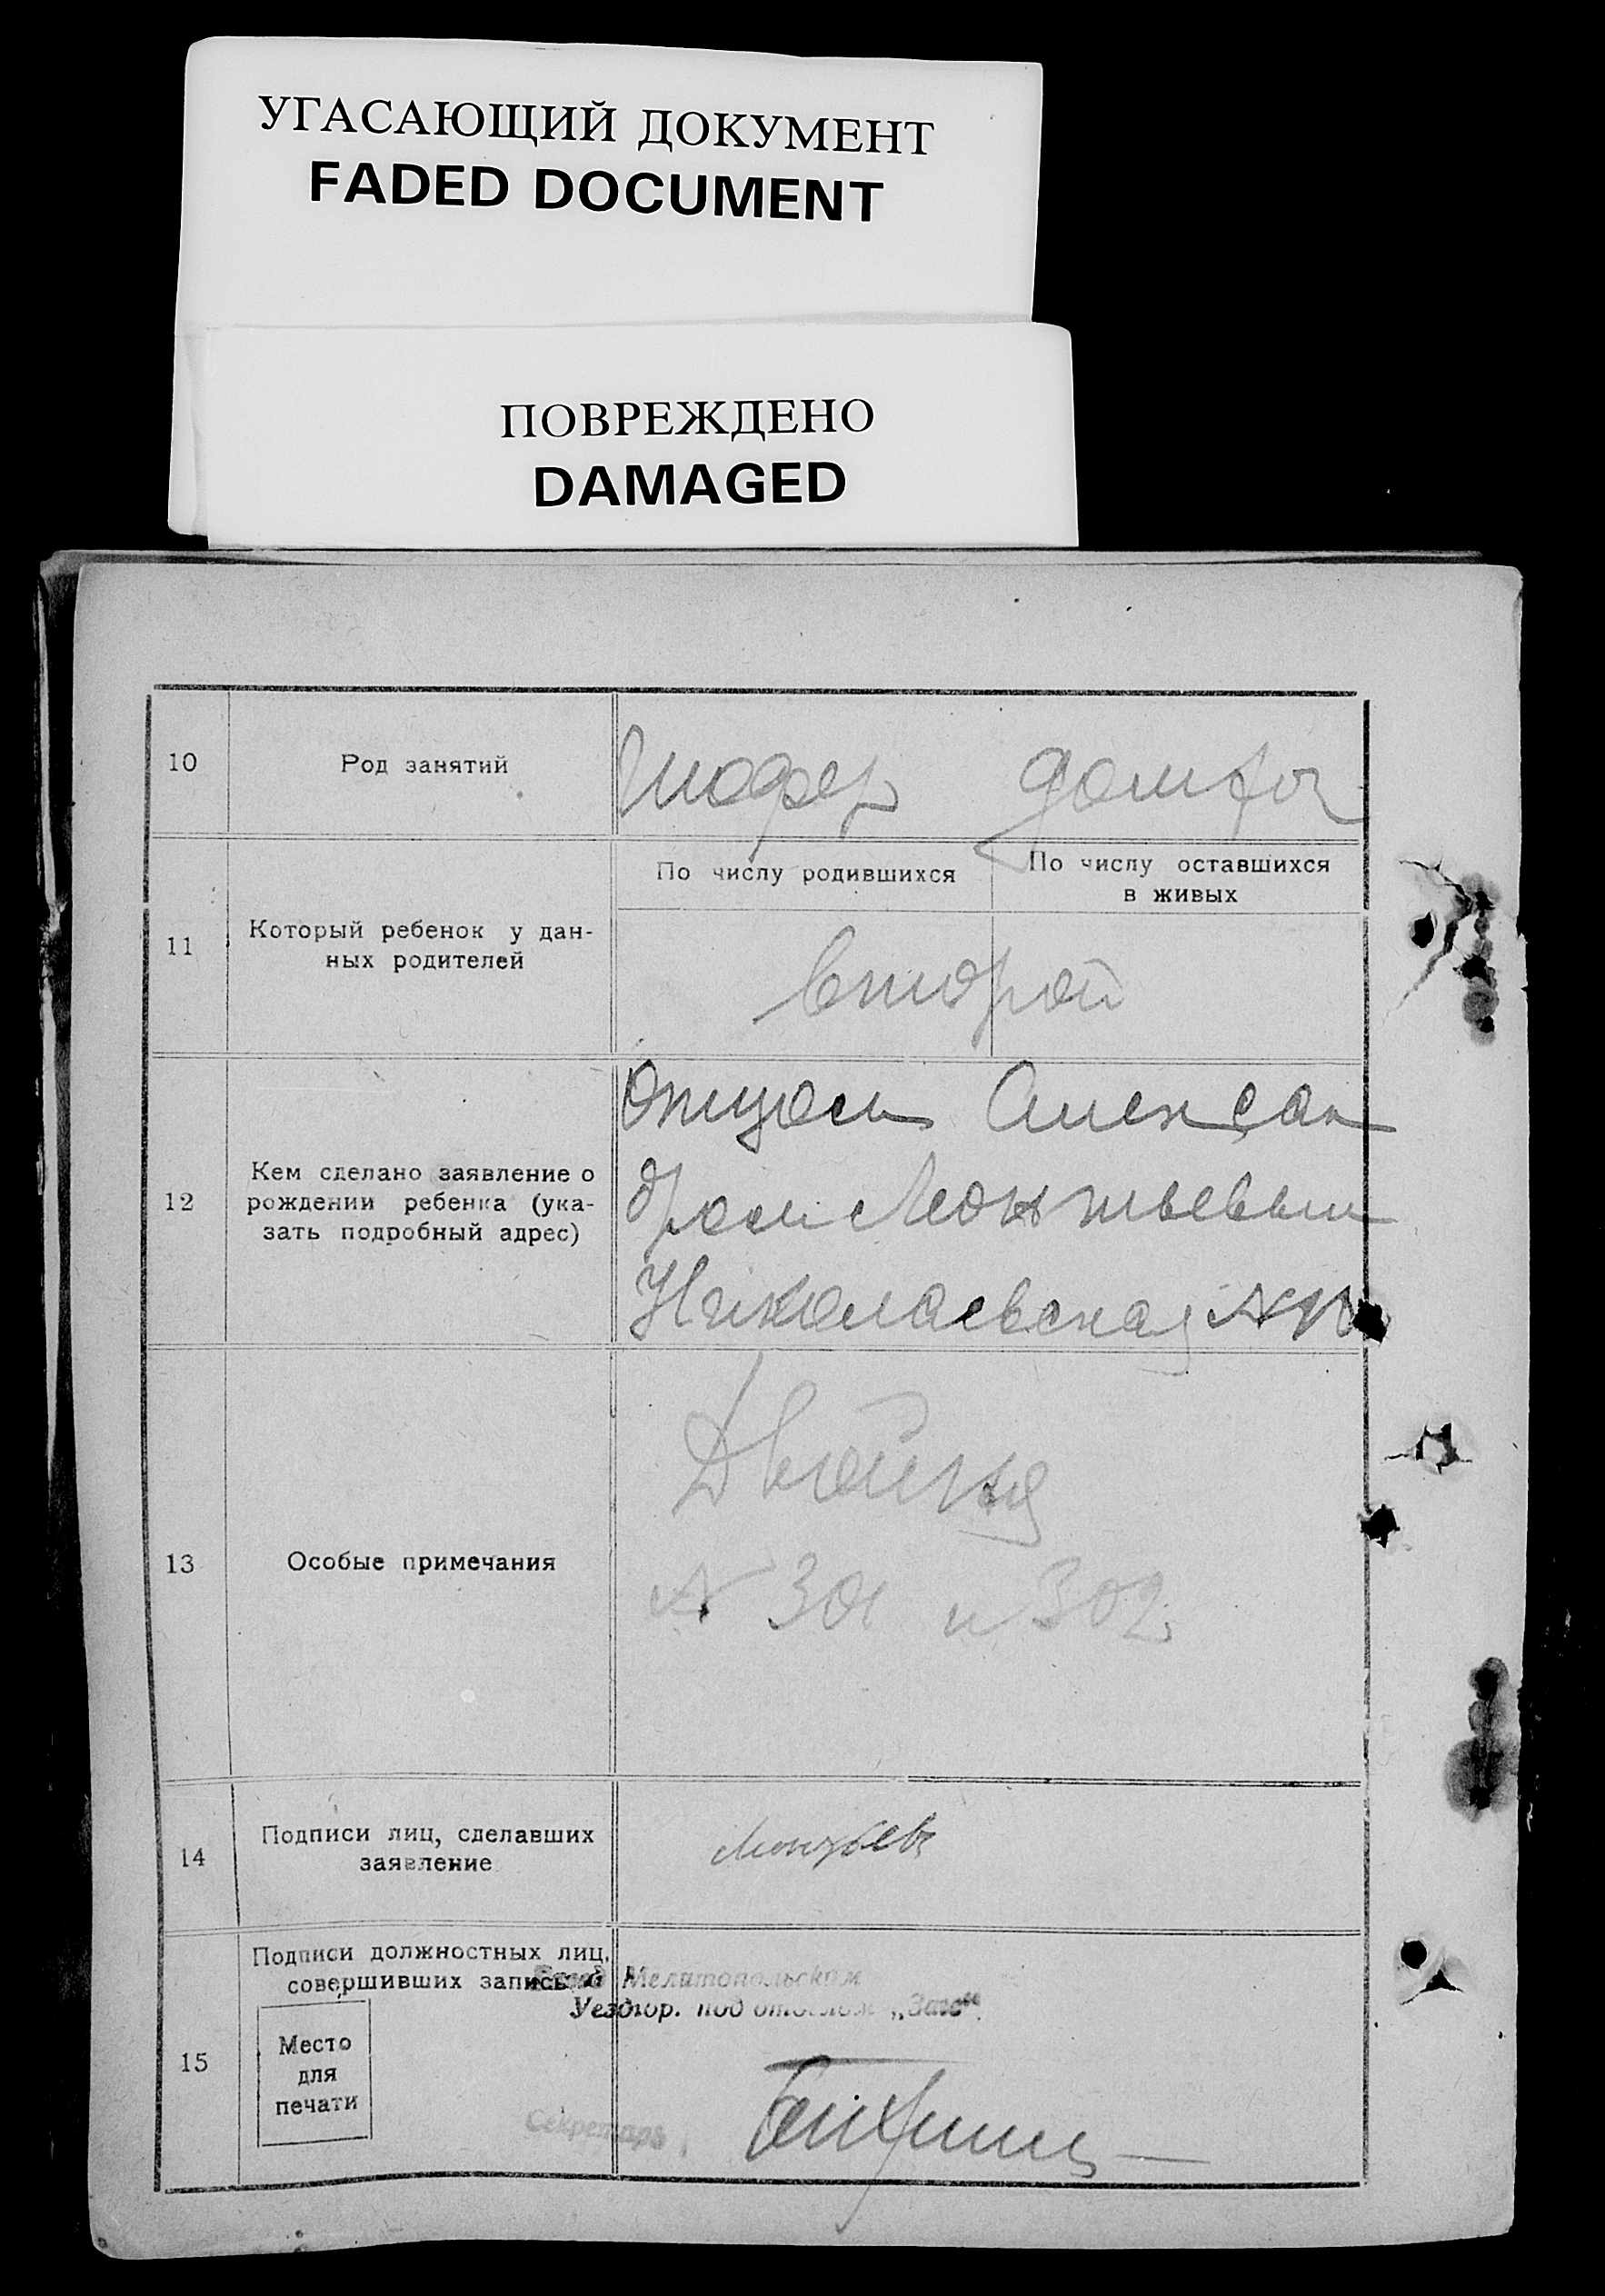 УГАСАЮЩИЙ ДОКУМЕНТ
FADED DOCUMENT
ПОВРЕЖДЕНО
DAMAGED
10 Род занятий шофер домхоз
По числу родившихся По числу оставшихся
в живых
11 Который ребенок у дан-
ных родителей
второй
Отцом Алексан
12 Кем сделано заявление о
рождении ребенка (ука-
зать подробный адрес)
дром Леонтьевым
Николаевская №
Двойня
№ 301 и 302
13 Особые примечания
14 Подписи лиц, сделавших
заявление
Леонтьев
15 Подписи должностных лиц,
совершивших запись
Мелитопольским
Уездгор. под отделом „Загс“
Место
для
печати
Секретарь